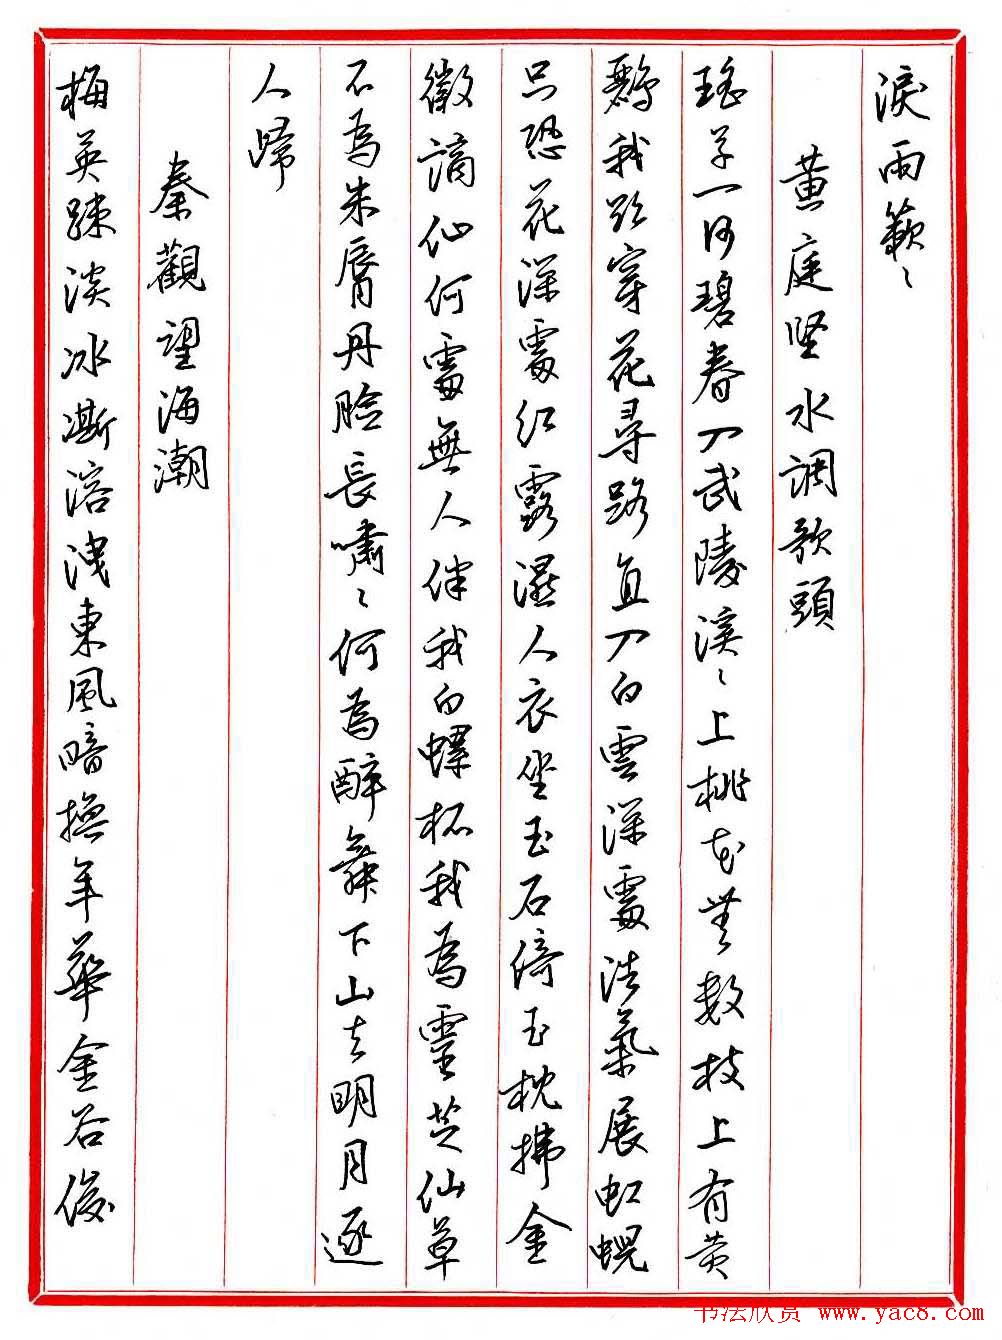 淚雨簌〻
黄庭坚水調歌頭
瑤草一何碧春入武陵溪〻上桃花無数枝上有黄
鸝我欲穿花尋路直入白雲深處浩氣展虹蜺
只恐花深處紅露濕人衣坐玉石倚玉枕拂金
徽謫仙何處無人伴我白螺杯我為靈芝仙草
不為朱脣丹臉長嘯〻何為醉舞下山去明月逐
人歸
秦觀望海潮
梅英疎淡冰澌溶洩東風暗換年華金谷俊
书法欣赏 www.yac8.com